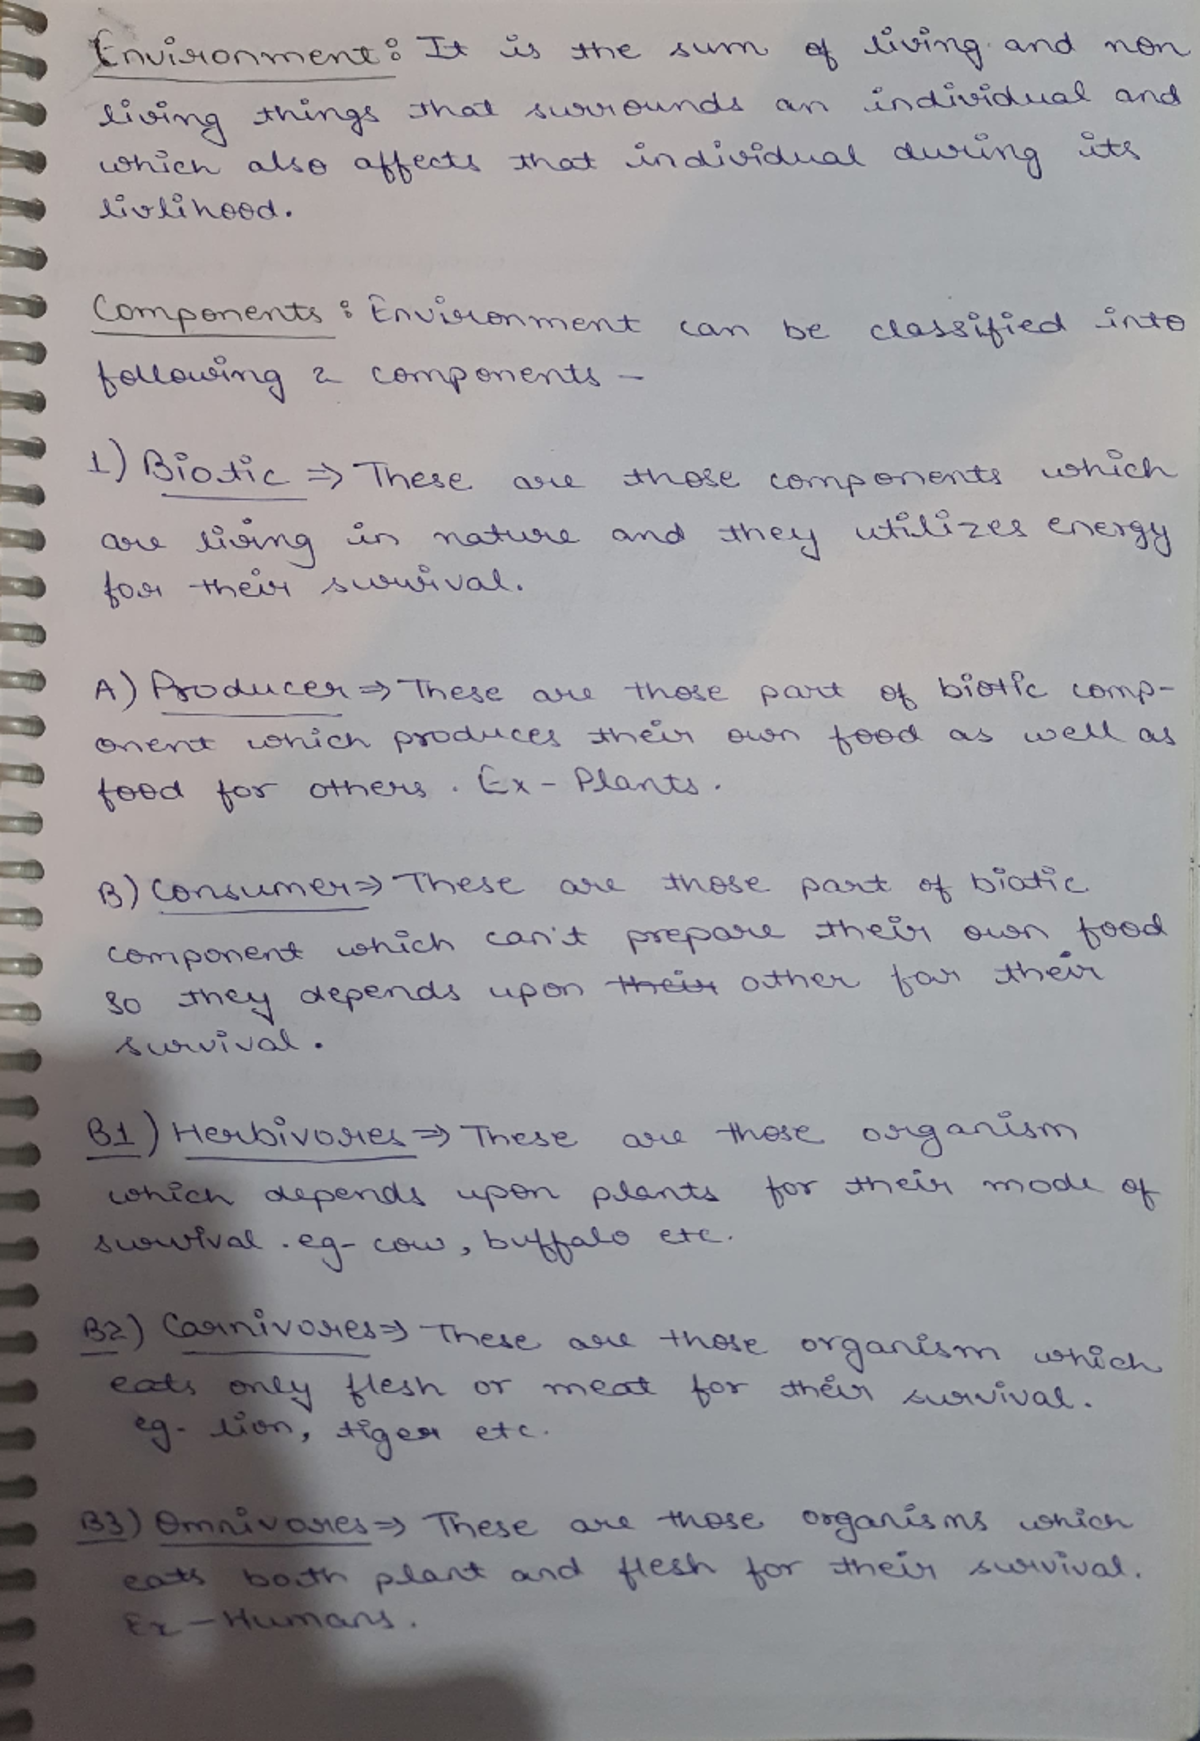 Environment: It is the sum of living and non
living things that surrounds an individual and
which also affects that individual during its
livlihood.
Components: Environment can be classified into
following 2 components -
1) Biotic => These are those components which
are living in nature and they utilizes energy
for their survival.
A) Producer => These are those part of biotic comp-
onent which produces their own food as well as
food for others. Ex - Plants.
B) Consumer => These are those part of biotic
component which can't prepare their own food
so they depends upon their other for their
survival.
B1) Herbivores => These are those organism
which depends upon plants for their mode of
survival. eg- cow, buffalo etc.
B2) Carnivores => These are those organism which
eats only flesh or meat for their survival.
eg- lion, tiger etc.
B3) Omnivores => These are those organisms which
eats both plant and flesh for their survival.
Ex - Humans.